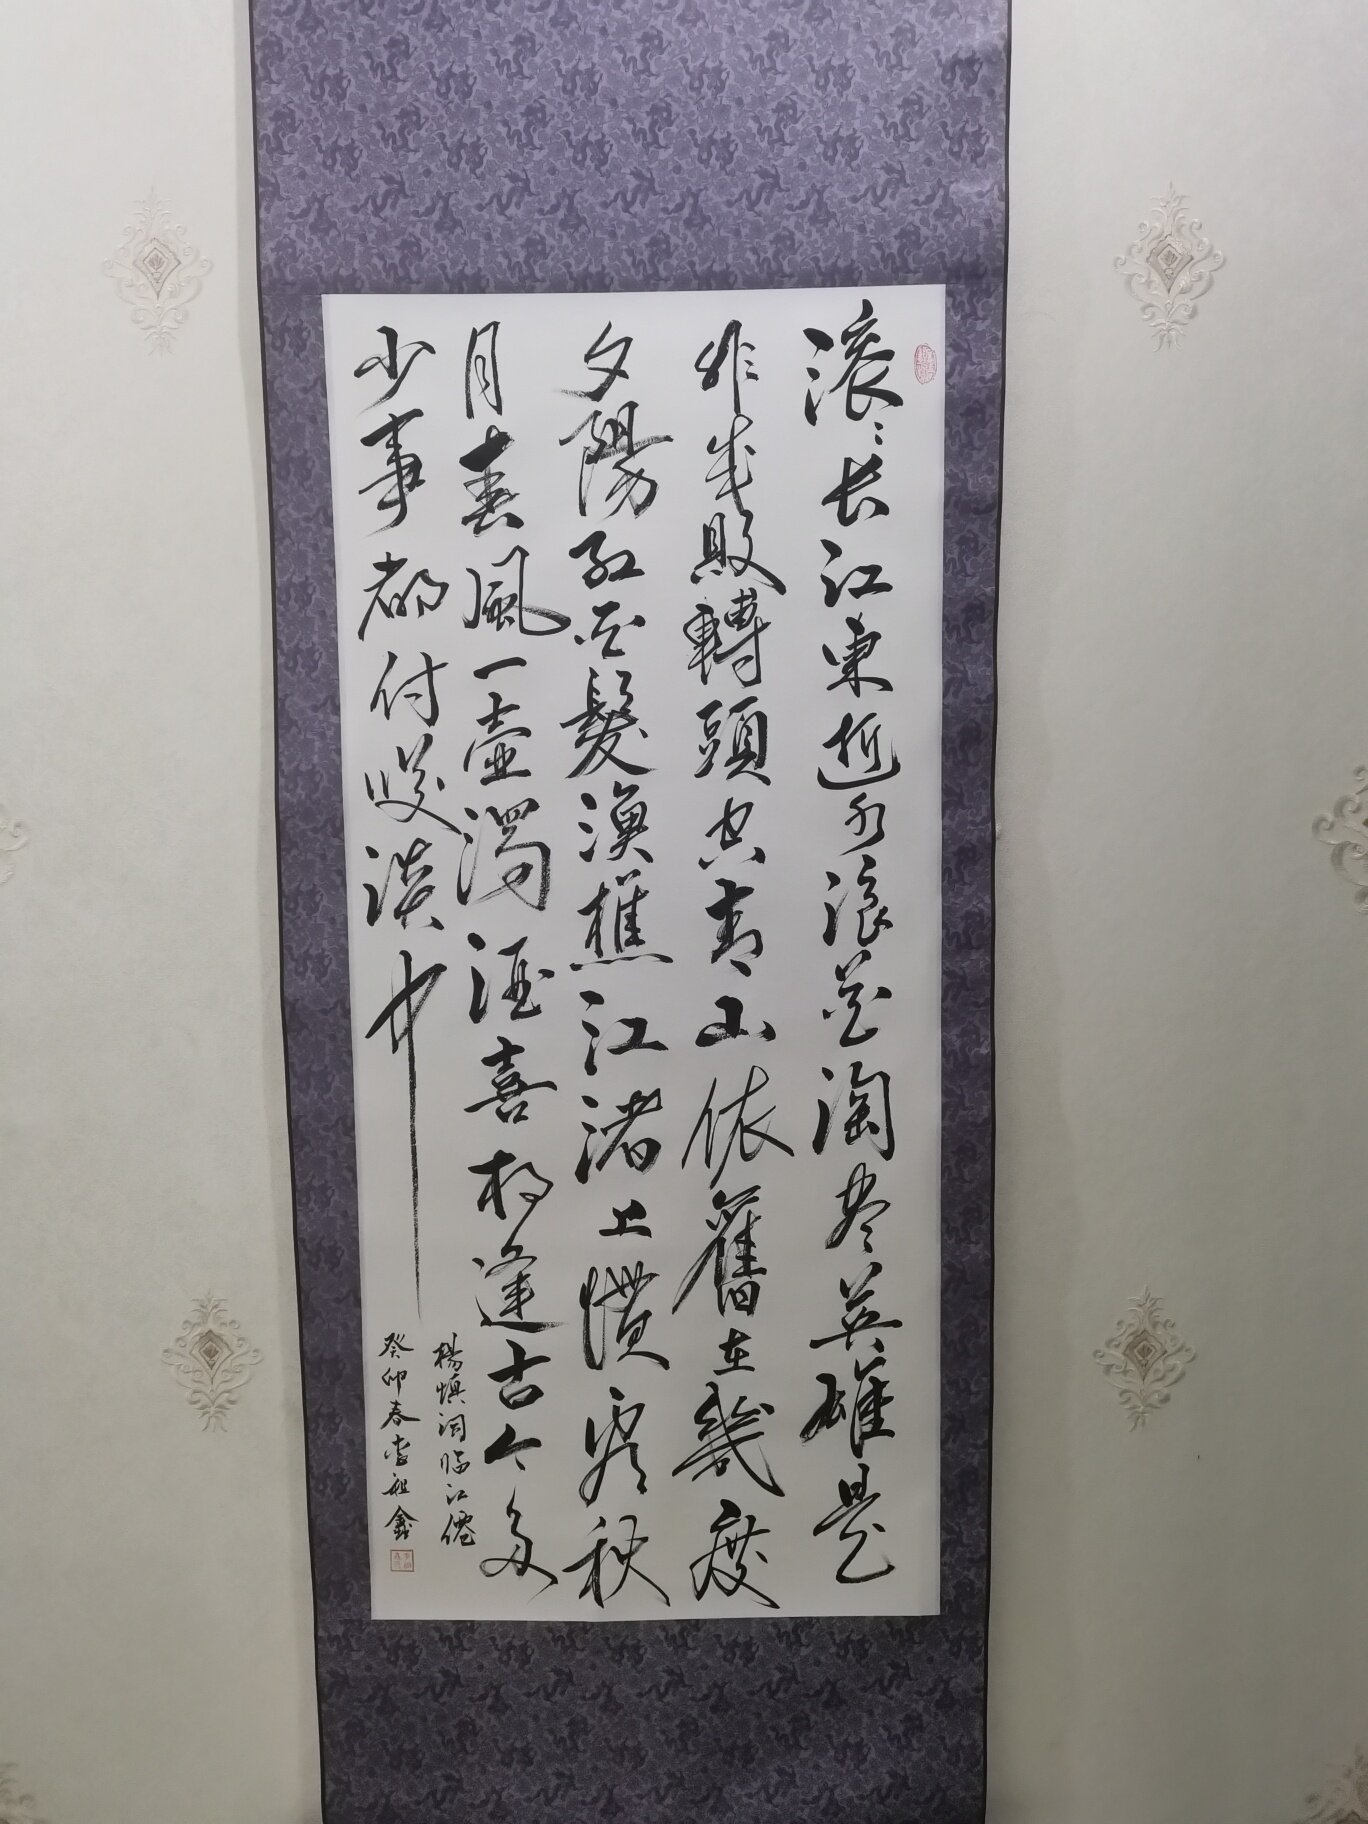 滚〻长江東逝水浪花淘尽英雄是
非成敗轉頭空青山依舊在幾度
夕陽红白髮漁樵江渚上慣看秋
月春風一壺濁酒喜相逢古今多
少事都付咲談中
楊慎词临江僊
癸卯春李祖鑫